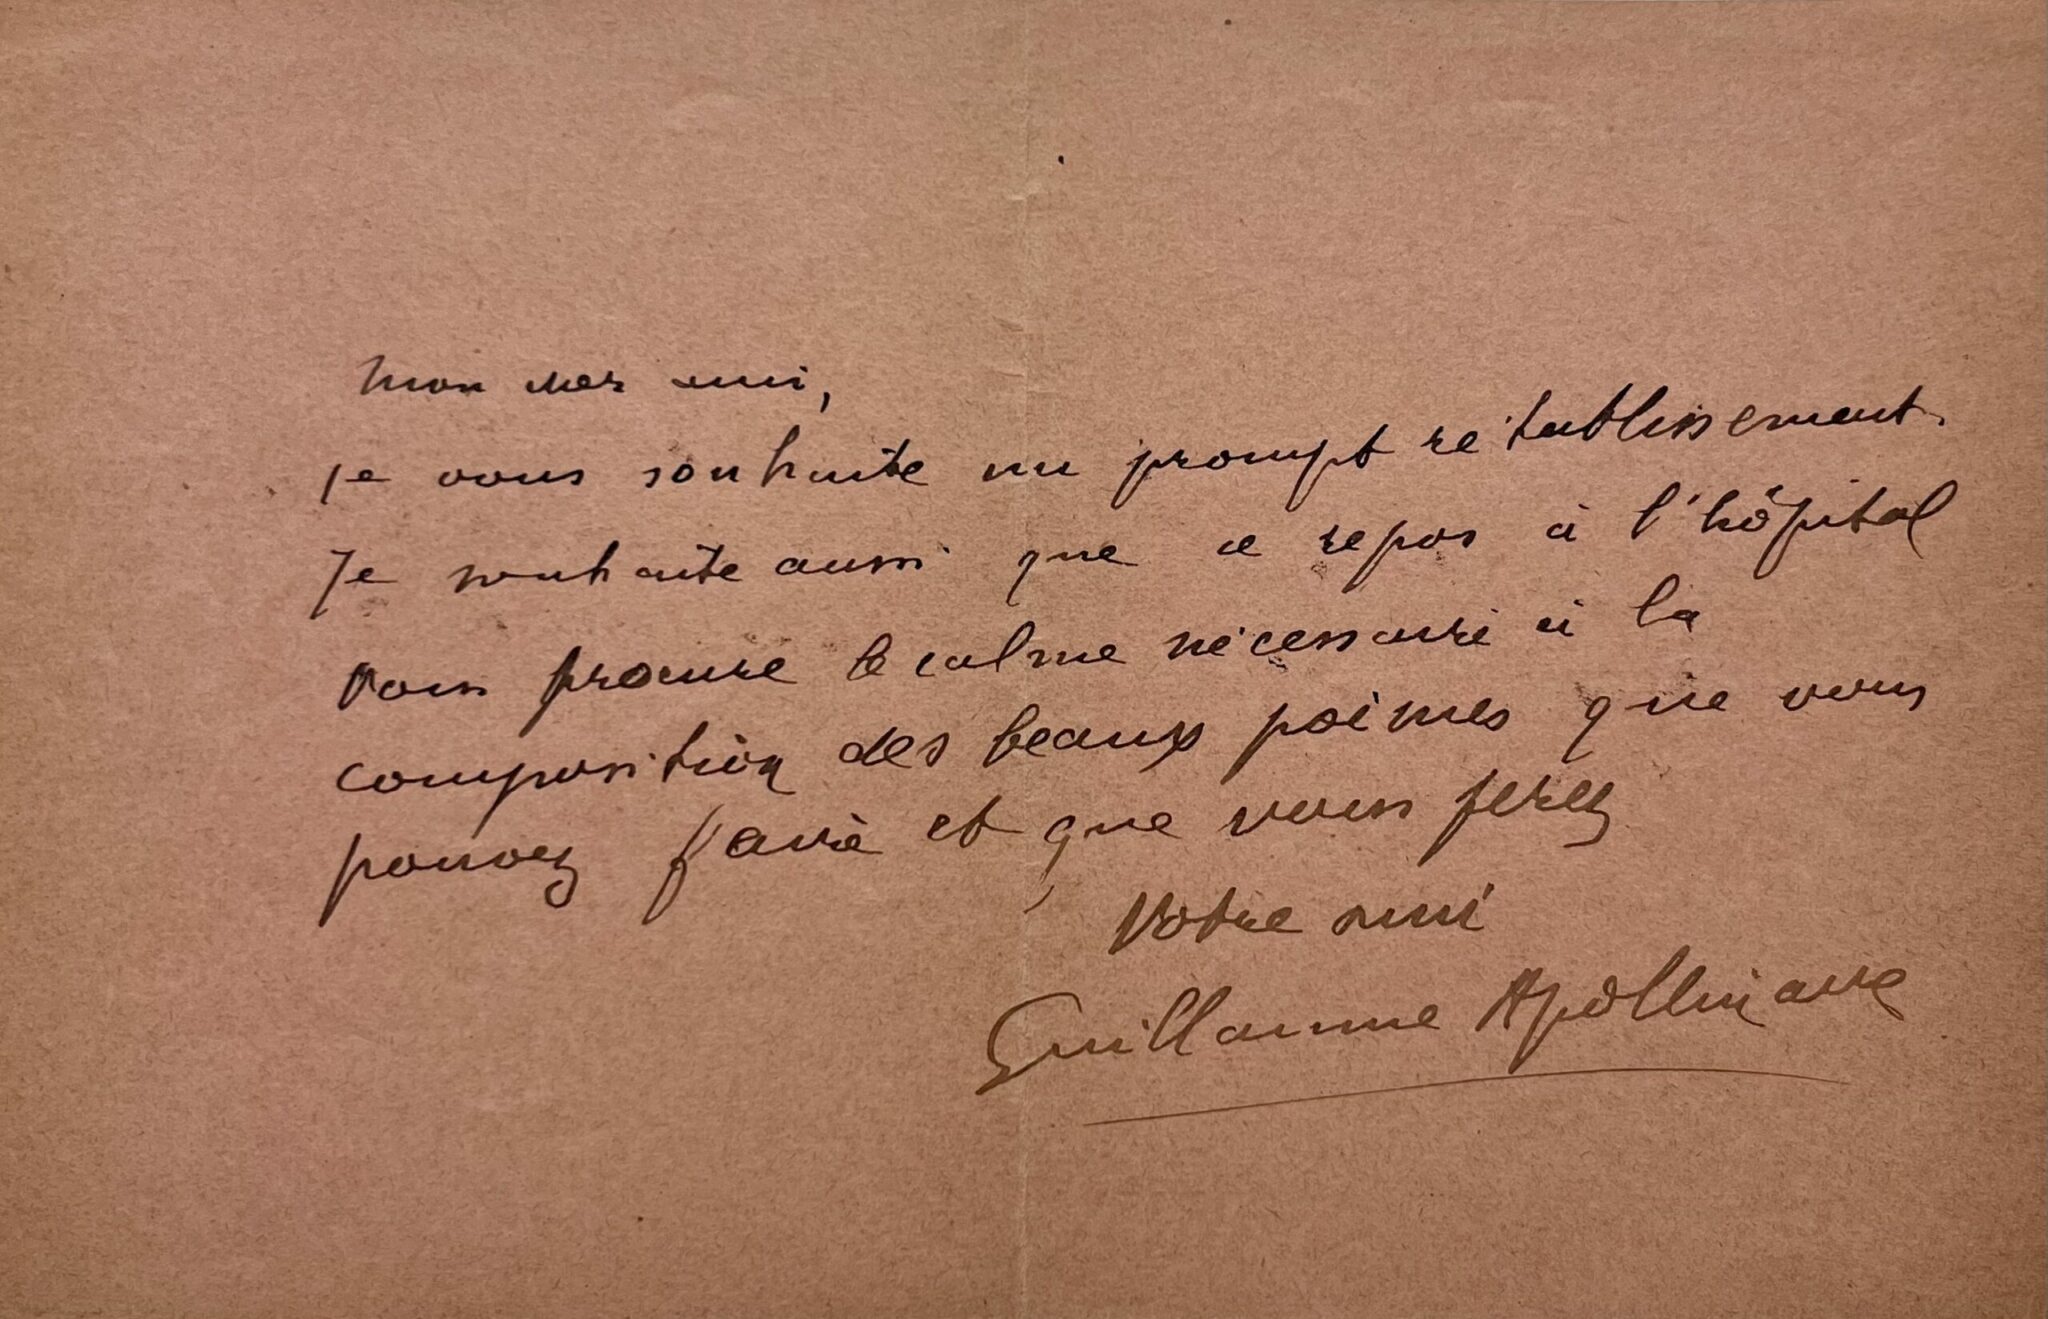 Mon cher ami,
je vous souhaite un prompt rétablissement.
Je souhaite aussi que ce repos à l'hôpital
vous procure le calme nécessaire à la
composition des beaux poèmes que vous
pouvez faire et que vous ferez
Votre ami
Guillaume Apollinaire